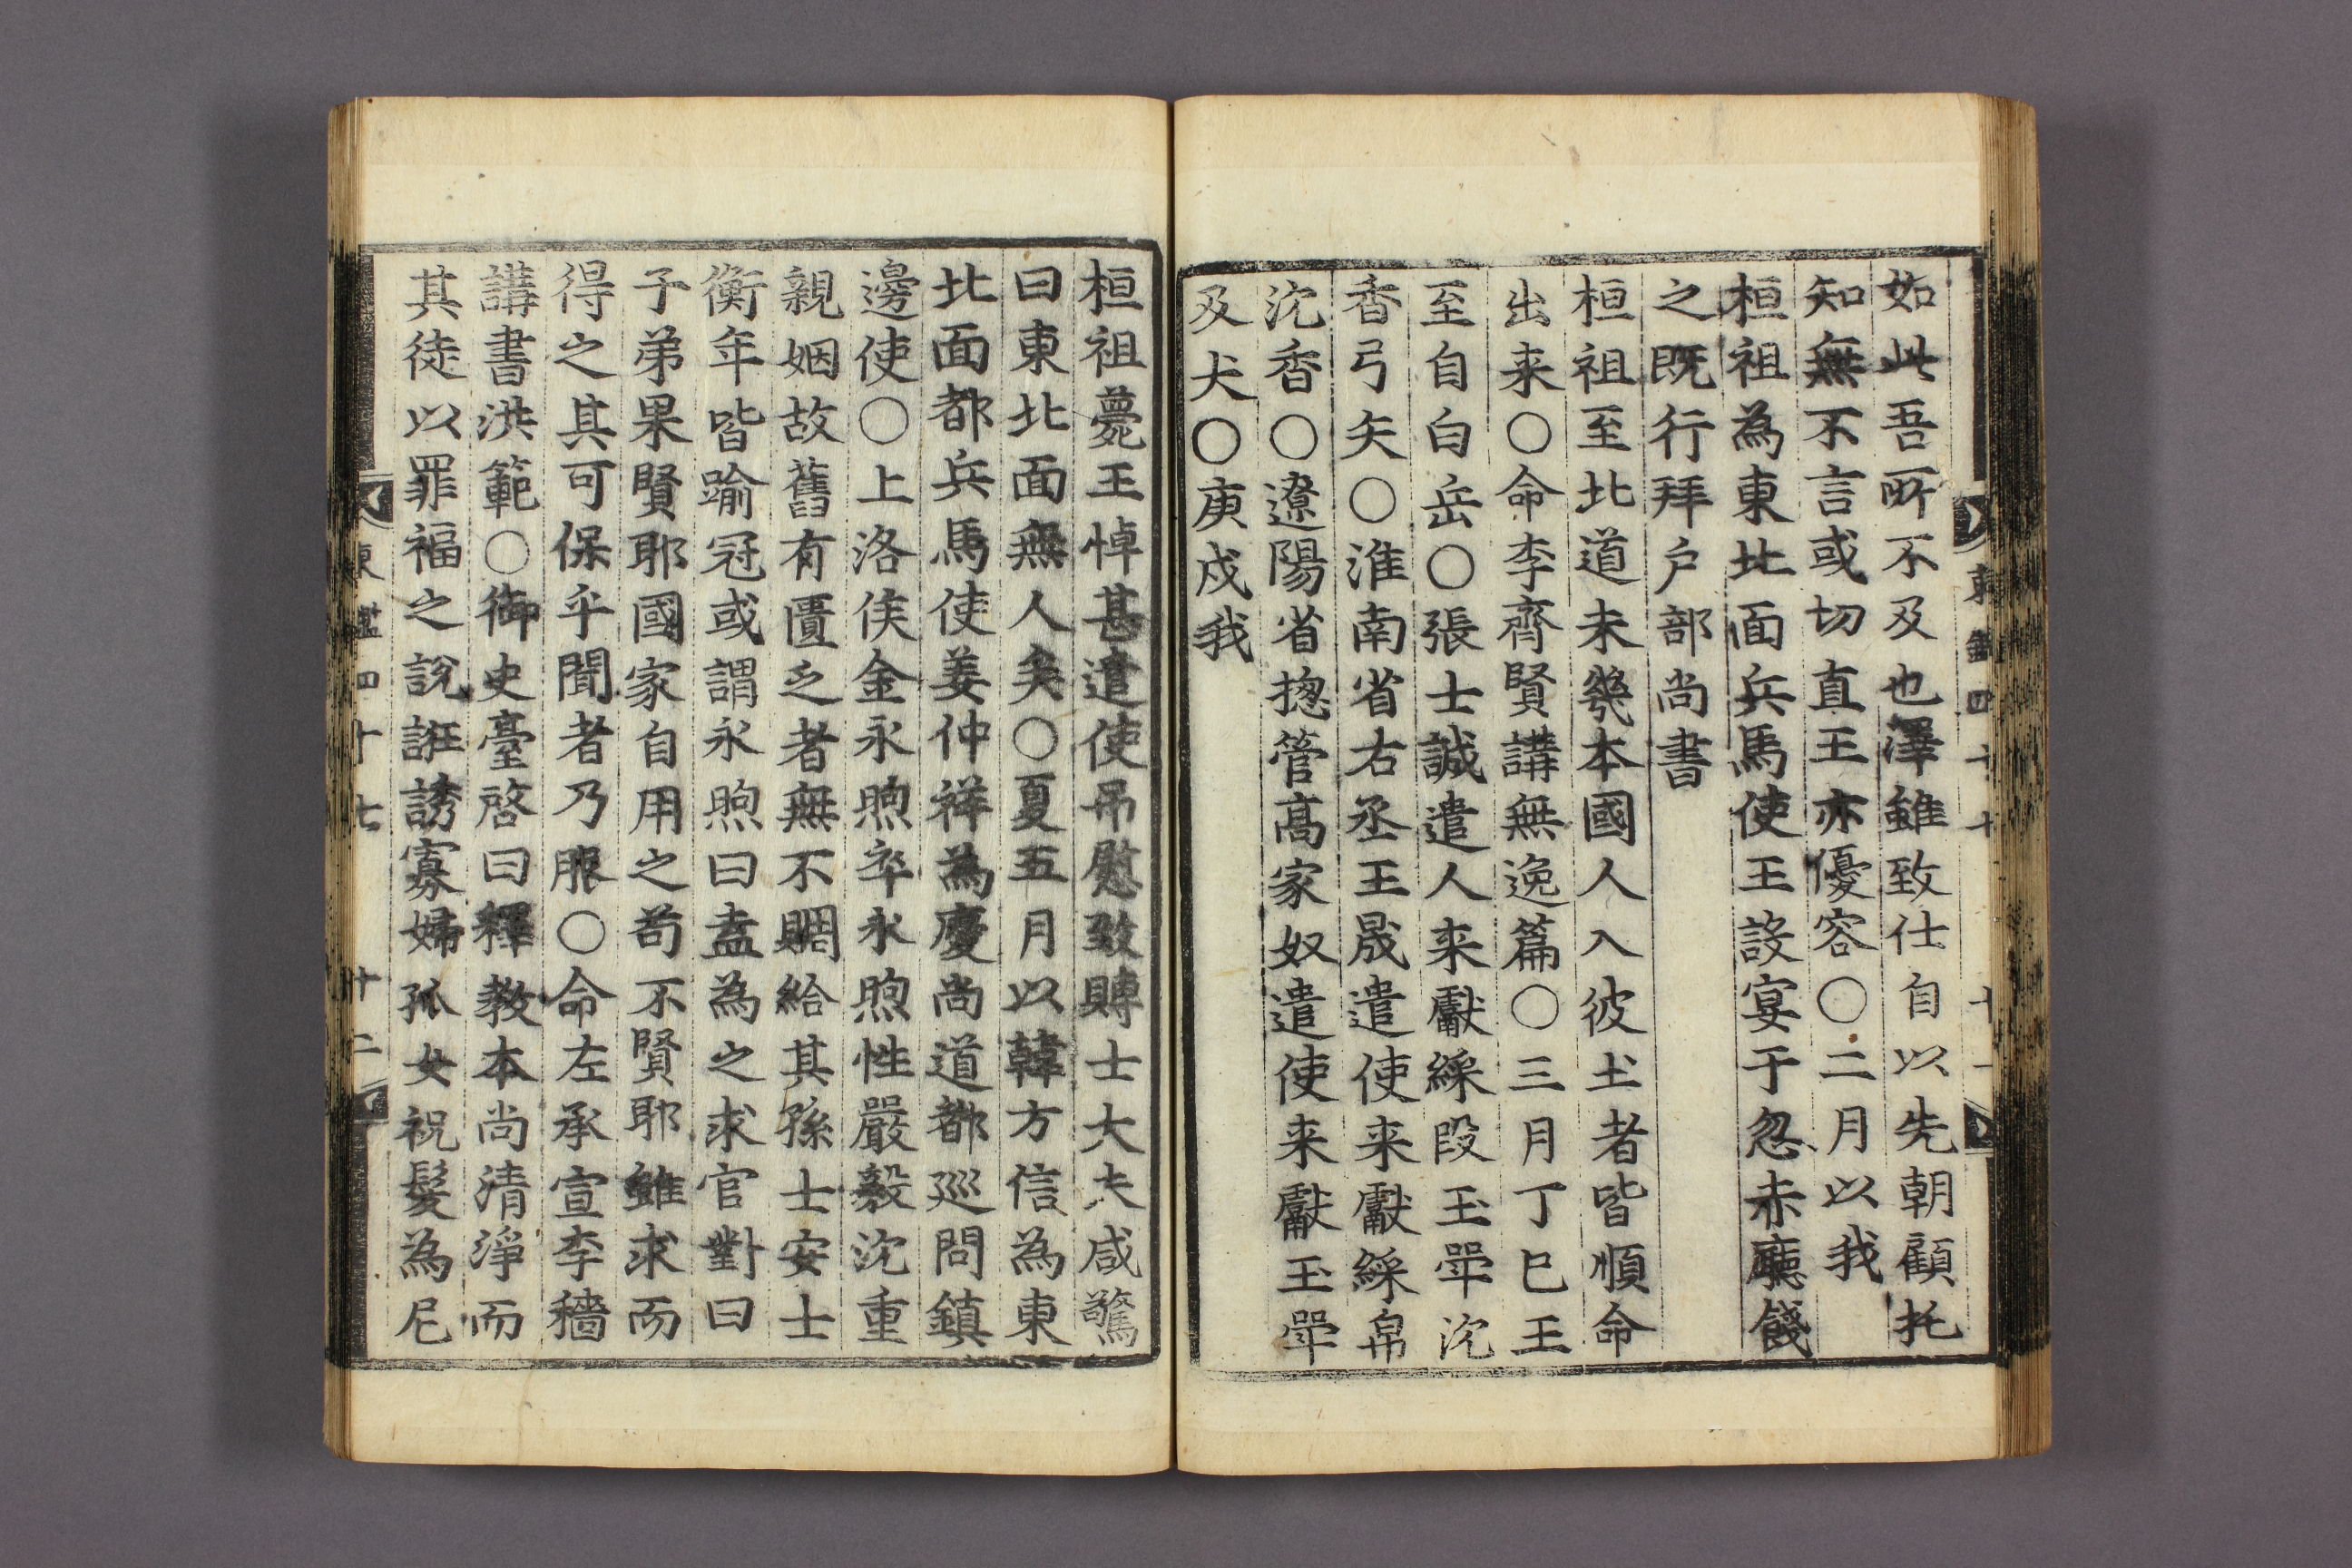 如此吾所不及也澤雖致仕自以先朝顧托
知無不言或切直王亦優容○二月以我
桓祖為東北面兵馬使王設宴于忽赤廳餞
之既行拜户部尚書
桓祖至北道未幾本國人入彼土者皆順命
出来○命李齊賢講無逸篇○三月丁巳王
至自白岳○張士誠遣人来獻綵段玉斝沈
香弓矢○淮南省右丞王晟遣使来獻綵帛
沈香○遼陽省摠管高家奴遣使来獻玉斝
及犬○庚戍我
桓祖薨王悼甚遣使吊慰致賻士大夫咸驚
曰東北面無人矣○夏五月以韓方信為東
北面都兵馬使姜仲祥為慶尚道都巡問鎮
邊使○上洛侯金永煦卒永煦性嚴毅沈重
親姻故舊有匱乏者無不賙給其孫士安士
衡年皆踰冠或謂永煦曰盍為之求官對曰
子弟果賢耶國家自用之苟不賢耶雖求而
得之其可保乎聞者乃服○命左承宣李穡
講書洪範○御史臺啓曰釋教本尚清淨而
其徒以罪福之說誑誘寡婦孤女祝髮為尼
東鑑四十七 十二